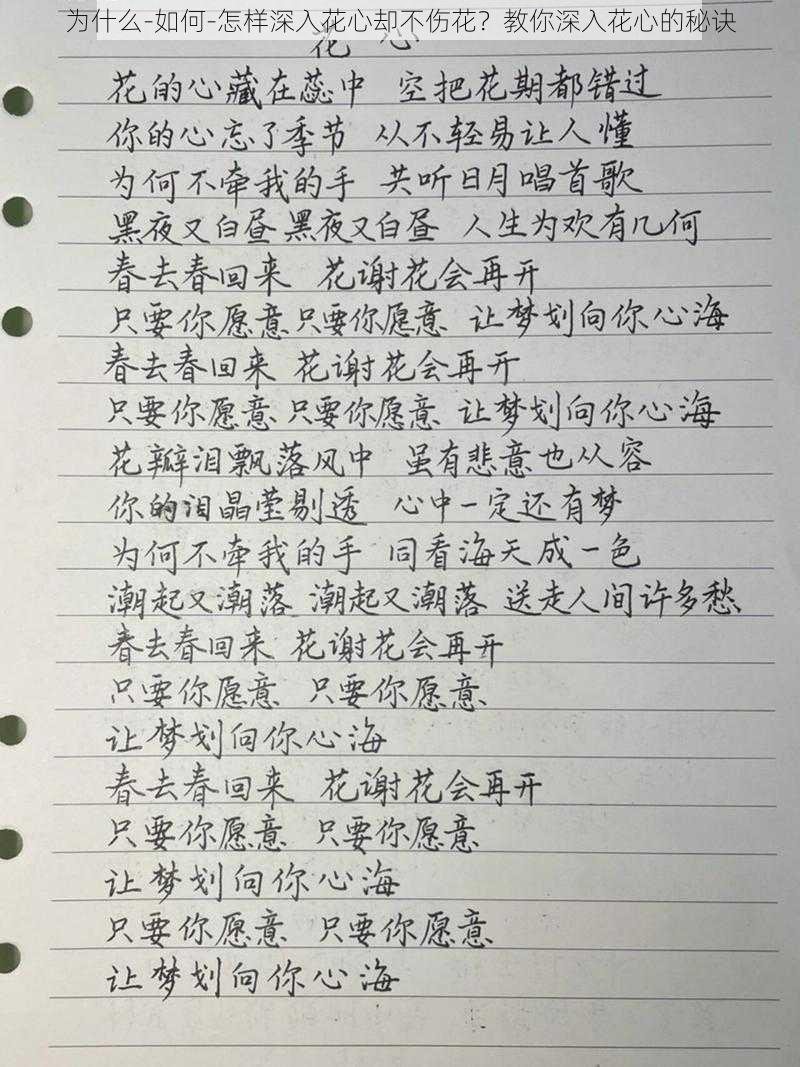 为什么-如何-怎样深入花心却不伤花？教你深入花心的秘诀
花 心
花的心藏在蕊中 空把花期都错过
你的心忘了季节 从不轻易让人懂
为何不牵我的手 共听日月唱首歌
黑夜又白昼 黑夜又白昼 人生为欢有几何
春去春回来 花谢花会再开
只要你愿意 只要你愿意 让梦划向你心海
春去春回来 花谢花会再开
只要你愿意 只要你愿意 让梦划向你心海
花瓣泪飘落风中 虽有悲意也从容
你的泪晶莹剔透 心中一定还有梦
为何不牵我的手 同看海天成一色
潮起又潮落 潮起又潮落 送走人间许多愁
春去春回来 花谢花会再开
只要你愿意 只要你愿意
让梦划向你心海
春去春回来 花谢花会再开
只要你愿意 只要你愿意
让梦划向你心海
只要你愿意 只要你愿意
让梦划向你心海